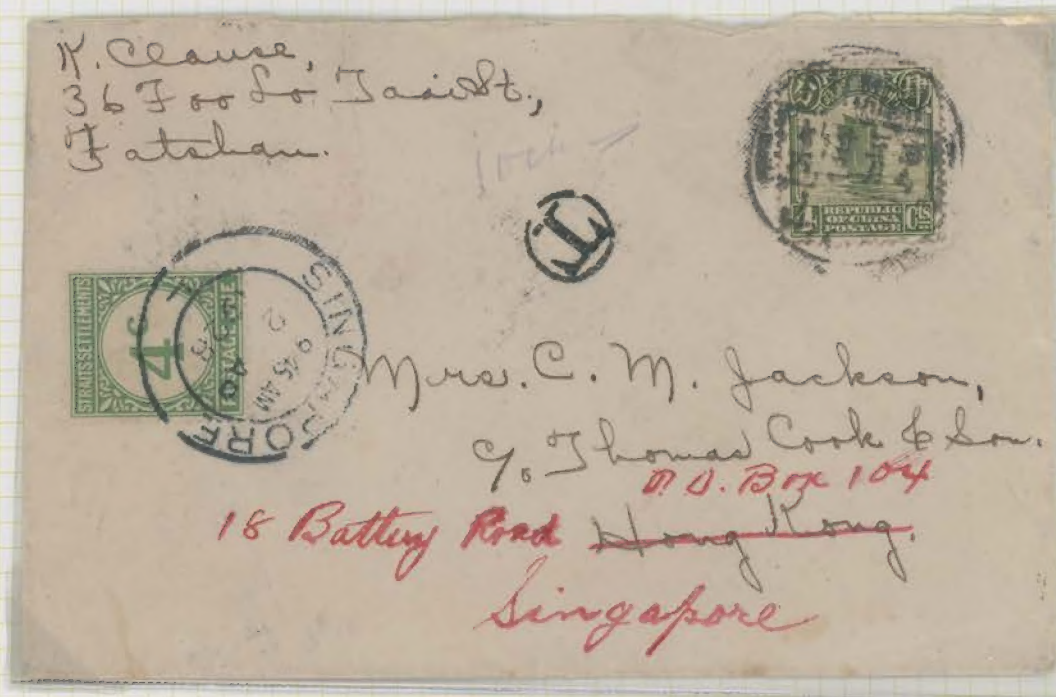 K. Clause,
36 Foo Lo Taai St.,
Fatshan.
T
4 Cts
REPUBLIC
OF CHINA
POSTAGE
STRAITS SETTLEMENTS
4c
SINGAPORE
9.45 AM
Mrs. C. M. Jackson,
c/o Thomas Cook & Son.
P. O. Box 104
18 Battery Road Hong Kong.
Singapore